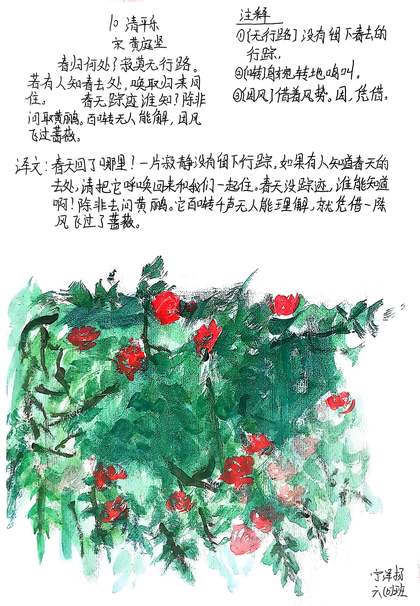 10 清平乐
宋 黄庭坚
春归何处?寂寞无行路。
若有人知春去处,唤取归来同
住。 春无踪迹谁知?除非
问取黄鹂。百啭无人能解,因风
飞过蔷薇。
注释
①[无行路]没有留下春去的
行踪。
②[啭]婉转地鸣叫。
③[因风]借着风势。因,凭借。
译文:春天回了哪里?一片寂静没有留下行踪。如果有人知道春天的
去处,请把它呼唤回来和我们一起住。春天没踪迹,谁能知道
啊!除非去问黄鹂。它百啭千声无人能理解,就凭借一阵
风飞过了蔷薇。
六(6)班